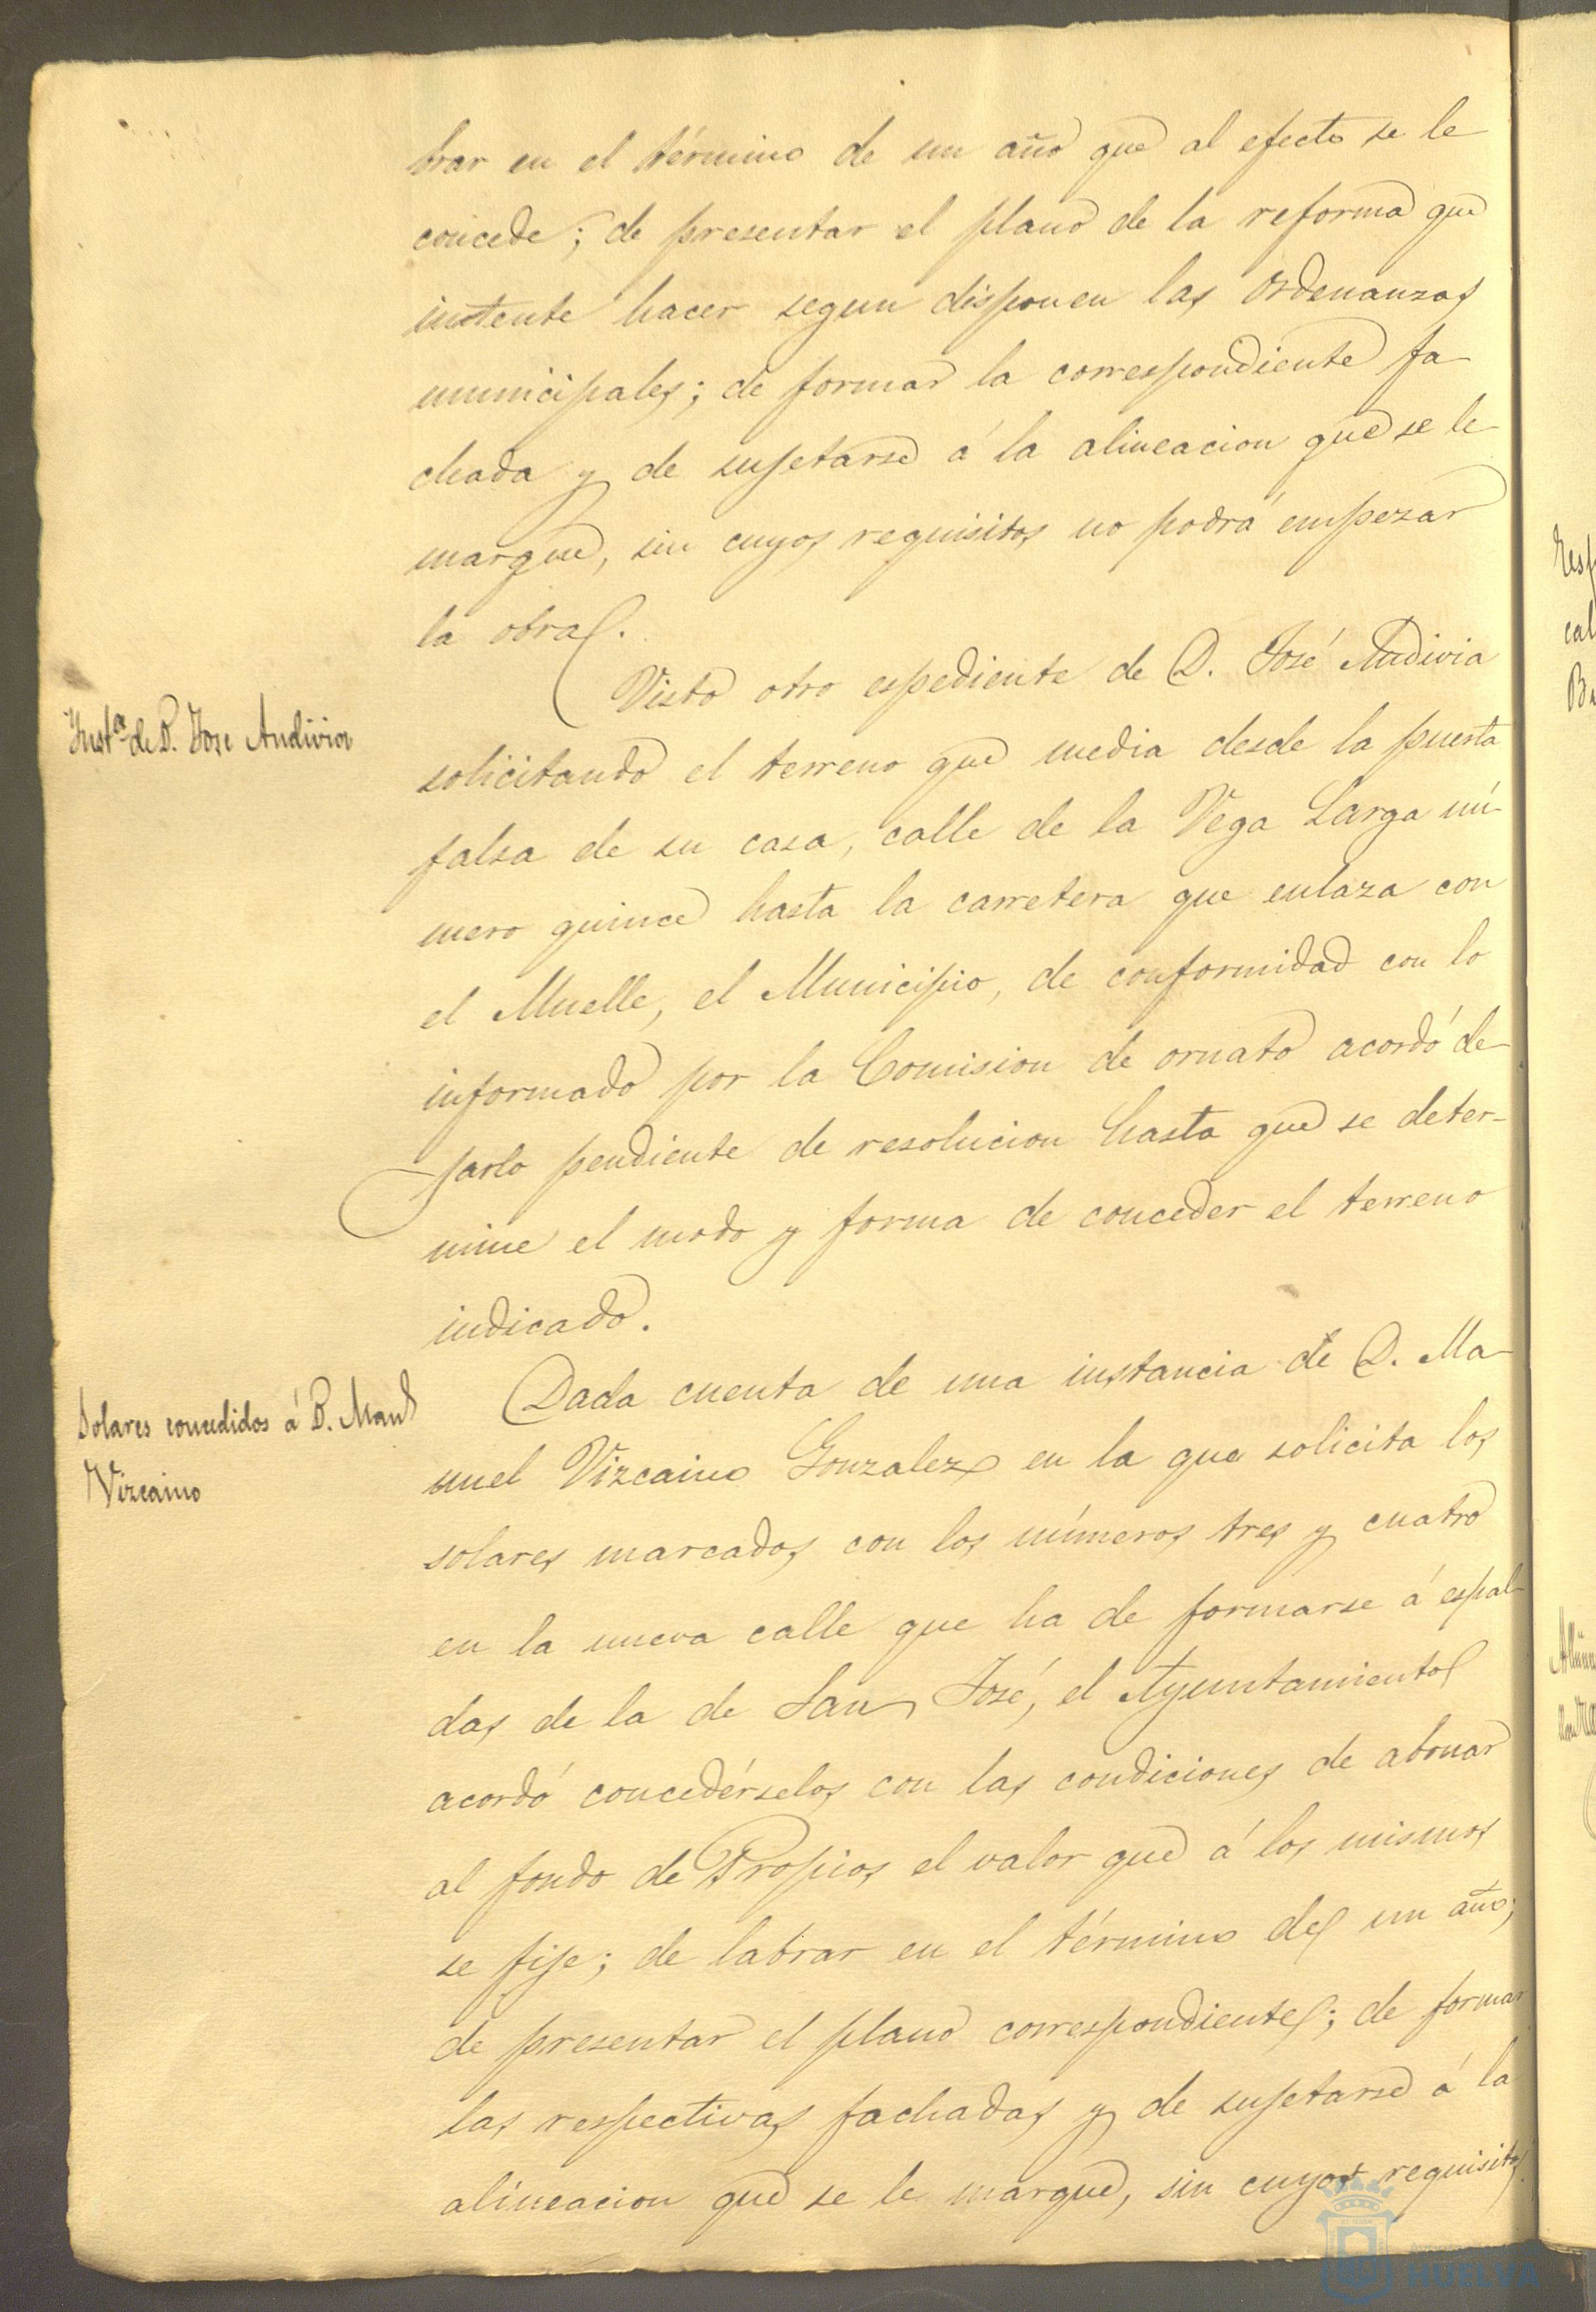 brar en el término de un año que al efecto se le
concede; de presentar el plano de la reforma que
intente hacer segun disponen las Ordenanzas
municipales; de formar la correspondiente fa-
chada y de sujetarse á la alineacion que se le
marque, sin cuyos requisitos no podrá empezar
la obra.
Inst.ª de D. Jose Andivia
Visto otro espediente de D. José Andivia
solicitando el terreno que media desde la puerta
falsa de su casa, calle de la Vega Larga nú-
mero quince hasta la carretera que enlaza con
el Muelle, el Municipio, de conformidad con lo
informado por la Comision de ornato acordó de-
jarlo pendiente de resolucion hasta que se deter-
mine el modo y forma de conceder el terreno
indicado.
Solares concedidos á D. Manl
Vizcaino
Dada cuenta de una instancia de D. Ma-
nuel Vizcaino Gonzalez en la que solicita los
solares marcados con los números tres y cuatro
en la nueva calle que ha de formarse á espal-
das de la de San José, el Ayuntamiento
acordó concedérselos con las condiciones de abonar
al fondo de Propios el valor que á los mismos
se fije; de labrar en el término de un año;
de presentar el plano correspondiente; de formar
las respectivas fachadas y de sujetarse á la
alineacion que se le marque, sin cuyos requisitos
HUELVA